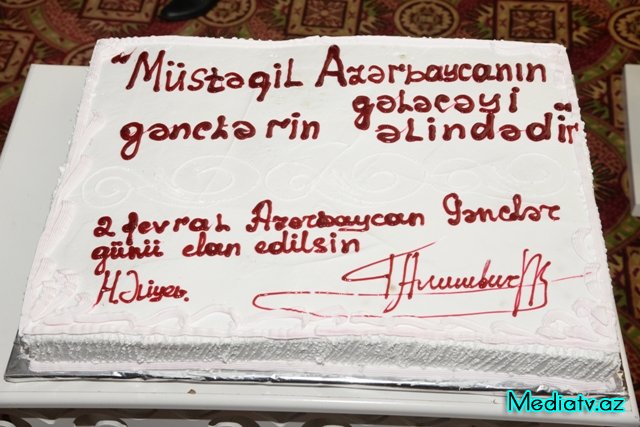 “Müstəqil Azərbaycanın
gələcəyi
gənclərin əlindədir
2 fevral Azərbaycan Gənclər
günü elan edilsin
H.Əliyev.
Mediatv.az